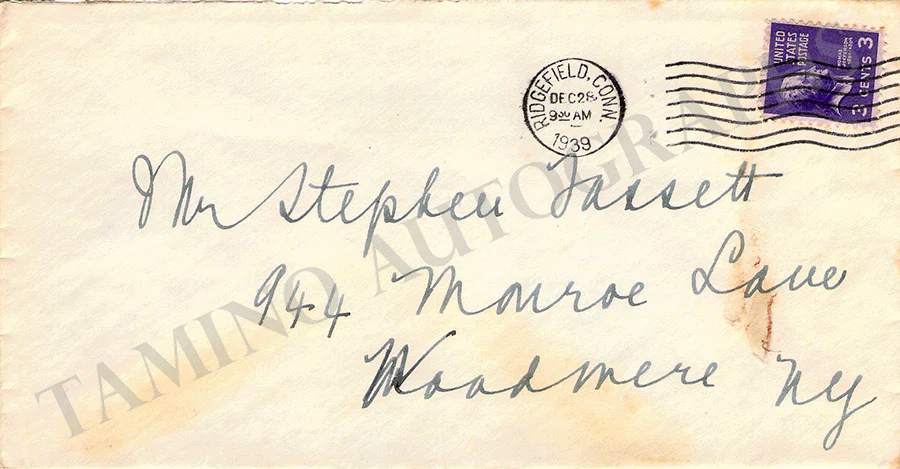 UNITED STATES POSTAGE
3 CENTS 3
RIDGEFIELD, CONN.
DEC 28
9 00 AM
1939
Mr Stephen Fassett
944 Monroe Lane
Woodmere NY
TAMINO AUTOGRAPHS